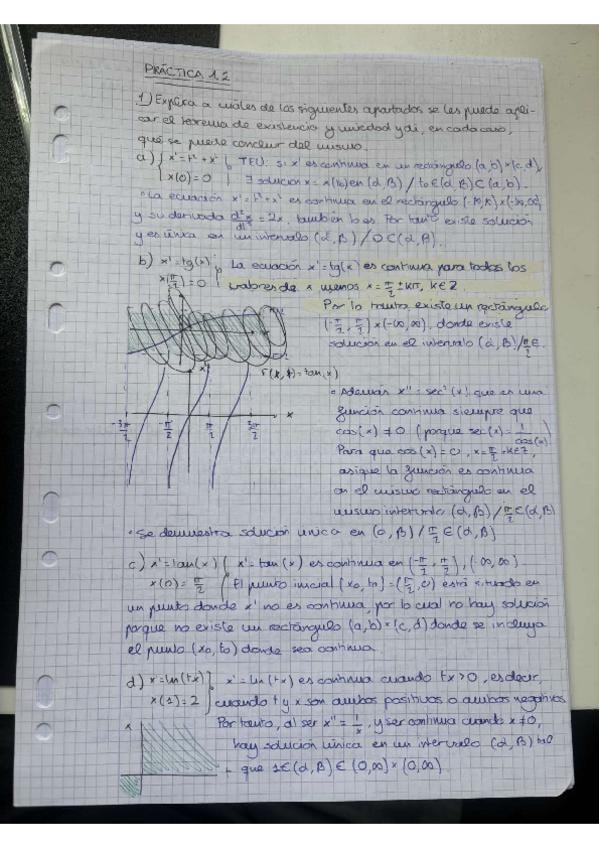 PRÁCTICA 1.2
1) Explica a cuales de los siguientes apartados se les puede apli-
car el teorema de existencia y unicidad y di, en cada caso,
qué se puede concluir del mismo.
a) { x' = t² + x² TEU: Si x' es continua en un rectángulo (a,b)×(c,d),
x(0) = 0 ∃ solución x = x(t) en (α,β) / t₀ ∈ (α,β) ⊂ (a,b).
· La ecuación x' = t² + x² es continua en el rectángulo (-∞,∞)×(-∞,∞)
y su derivada = 2x, también lo es. Por tanto existe solución
y es única en un intervalo (α,β) / 0 ⊂ (α,β).
b) x' = tg(x) La ecuación x' = tg(x) es continua para todos los
x(π/2) = 0 valores de x menos x = π/2 ± kπ, k∈Z.
Por lo tanto existe un rectángulo
(-π/2, π/2)×(-∞,∞), donde existe
solución en el intervalo (α,β)/π/2 ∈
f(x,t) = tan(x)
x
-3π/2 -π/2 π/2 3π/2
· Además x'' = sec²(x) que es una
función continua siempre que
cos(x) ≠ 0 (porque sec(x) = 1/cos(x)
Para que cos(x) = 0, x = π/2 + kπ
asique la función es continua
en el mismo rectángulo en el
mismo intervalo (α,β)/π/2 ∈ (α,β)
· Se demuestra solución única en (α,β) / π/2 ∈ (α,β)
c) x' = tan(x) { x' = tan(x) es continua en (-π/2, π/2), (-∞,∞)
x(0) = π/2 El punto inicial (x₀,t₀) = (π/2, 0) está situado en
un punto donde x' no es continua, por lo cual no hay solución
porque no existe un rectángulo (a,b)×(c,d) donde se incluya
el punto (x₀,t₀) donde sea continua.
d) x' = ln(tx) x' = ln(tx) es continua cuando tx > 0, es decir,
x(1) = 2 cuando t y x son ambos positivos o ambos negativos.
Por tanto, al ser x'' = 1/x, y ser continua cuando x ≠ 0,
hay solución única en un intervalo (α,β)
que 1 ∈ (α,β) ∈ (0,∞)×(0,∞).
x
t